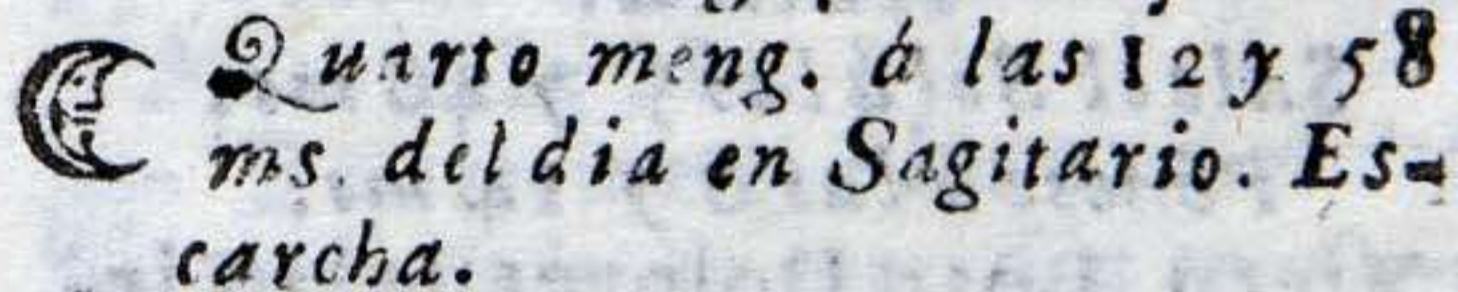 Quarto meng. á las 12 y 58
ms. del dia en Sagitario. Es-
carcha.